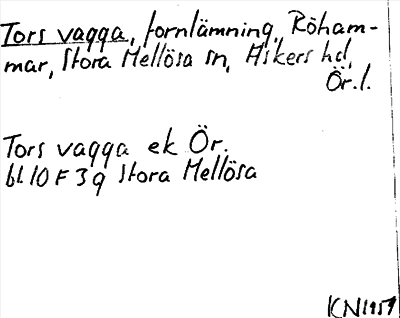 Tors vagga, fornlämning, Röham-
mar, Stora Mellösa sn, Askers hd,
Ör.l.
Tors vagga ek Ör.
bl.10 F 3g Stora Mellösa
KN1959